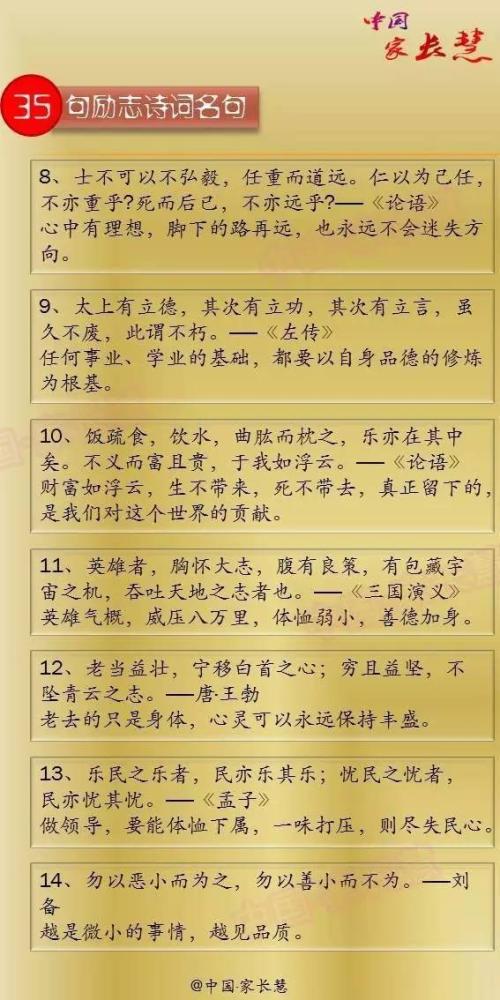 中国
家长慧
35 句励志诗词名句
8、士不可以不弘毅，任重而道远。仁以为己任，
不亦重乎?死而后已，不亦远乎?——《论语》
心中有理想，脚下的路再远，也永远不会迷失方
向。
9、太上有立德，其次有立功，其次有立言，虽
久不废，此谓不朽。——《左传》
任何事业、学业的基础，都要以自身品德的修炼
为根基。
10、饭疏食，饮水，曲肱而枕之，乐亦在其中
矣。不义而富且贵，于我如浮云。——《论语》
财富如浮云，生不带来，死不带去，真正留下的，
是我们对这个世界的贡献。
11、英雄者，胸怀大志，腹有良策，有包藏宇
宙之机，吞吐天地之志者也。——《三国演义》
英雄气概，威压八万里，体恤弱小，善德加身。
12、老当益壮，宁移白首之心；穷且益坚，不
坠青云之志。——唐·王勃
老去的只是身体，心灵可以永远保持丰盛。
13、乐民之乐者，民亦乐其乐；忧民之忧者，
民亦忧其忧。——《孟子》
做领导，要能体恤下属，一味打压，则尽失民心。
14、勿以恶小而为之，勿以善小而不为。——刘
备
越是微小的事情，越见品质。
@中国·家长慧